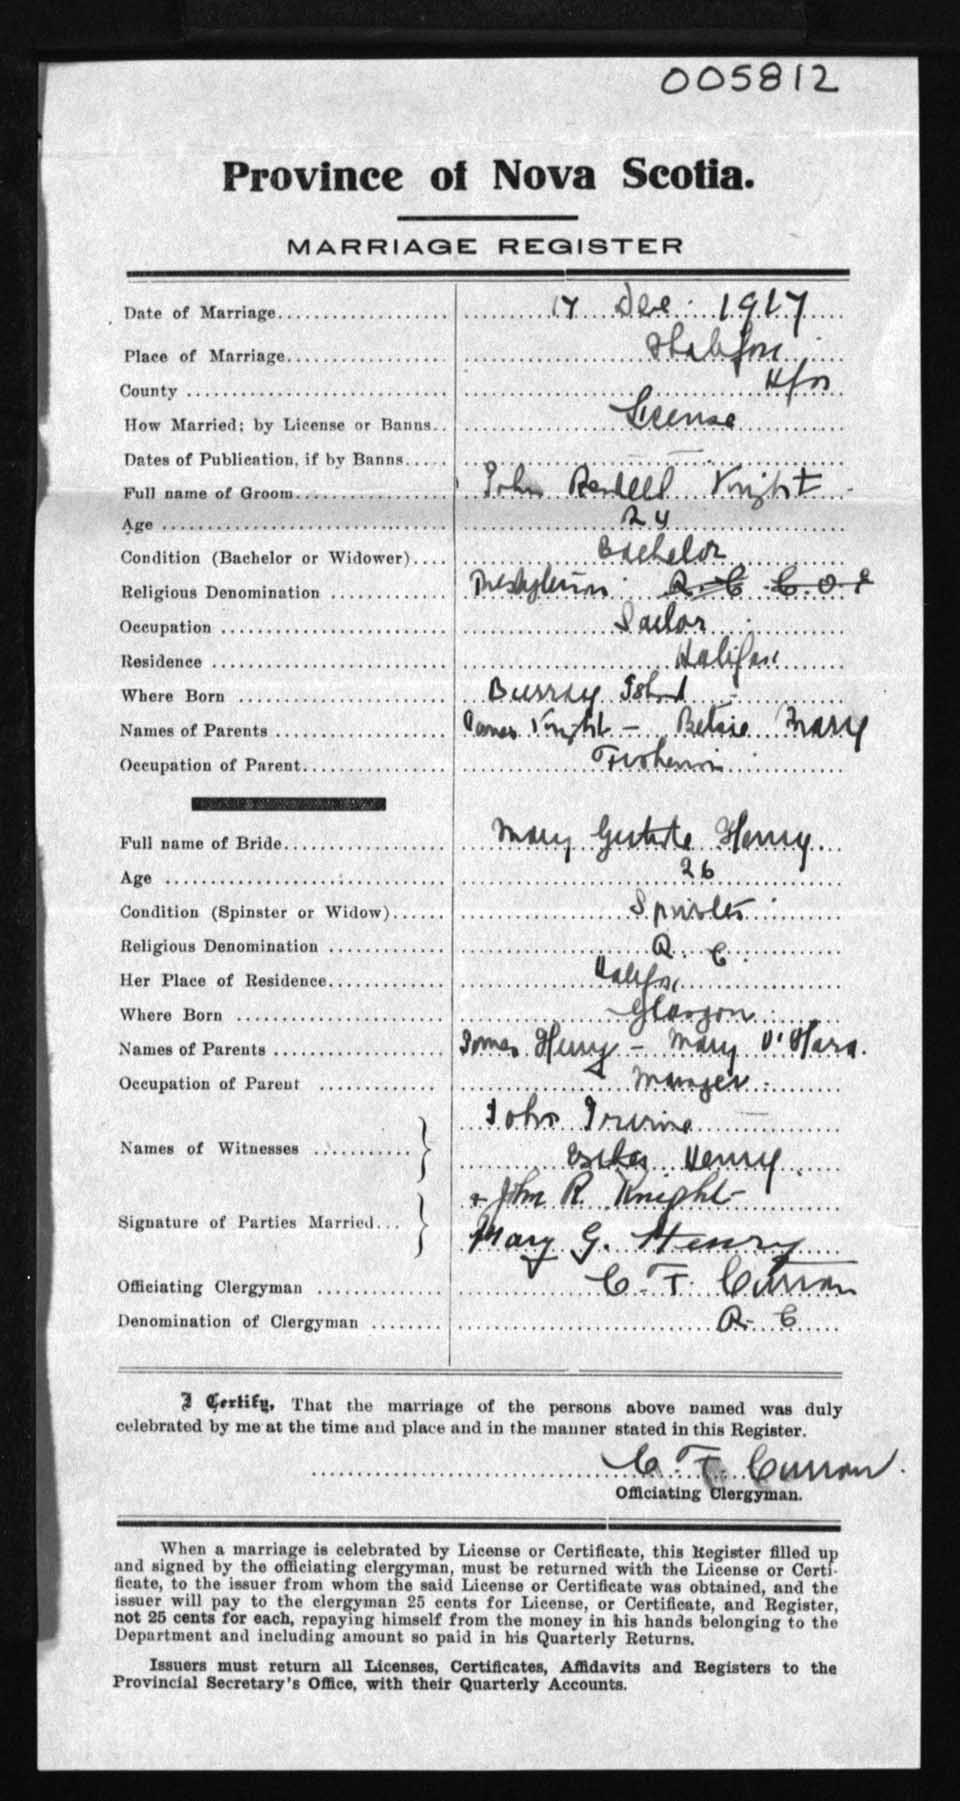 005812
Province of Nova Scotia.
MARRIAGE REGISTER
Date of Marriage 17 Dec. 1917
Place of Marriage Halifax
County Hfx
How Married; by License or Banns License
Dates of Publication, if by Banns
Full name of Groom John Knight
Age 24
Condition (Bachelor or Widower) Bachelor
Religious Denomination Presbyterian R. C C. O. E
Occupation Sailor
Residence Halifax
Where Born Island
Names of Parents James Knight - Betsie Mary
Occupation of Parent Fisherman
Full name of Bride Mary Gertrude Henry
Age 26
Condition (Spinster or Widow) Spinster
Religious Denomination R. C.
Her Place of Residence Halifax
Where Born Glasgow
Names of Parents James Henry - Mary O'Hara.
Occupation of Parent Manager
Names of Witnesses John Irvine
Henry
Signature of Parties Married John R. Knight
Mary G. Henry
Officiating Clergyman C. F. Curran
Denomination of Clergyman R. C
I Certify, That the marriage of the persons above named was duly
celebrated by me at the time and place and in the manner stated in this Register.
C. F. Curran.
Officiating Clergyman.
When a marriage is celebrated by License or Certificate, this Register filled up
and signed by the officiating clergyman, must be returned with the License or Certi-
ficate, to the issuer from whom the said License or Certificate was obtained, and the
issuer will pay to the clergyman 25 cents for License, or Certificate, and Register,
not 25 cents for each, repaying himself from the money in his hands belonging to the
Department and including amount so paid in his Quarterly Returns.
Issuers must return all Licenses, Certificates, Affidavits and Registers to the
Provincial Secretary's Office, with their Quarterly Accounts.